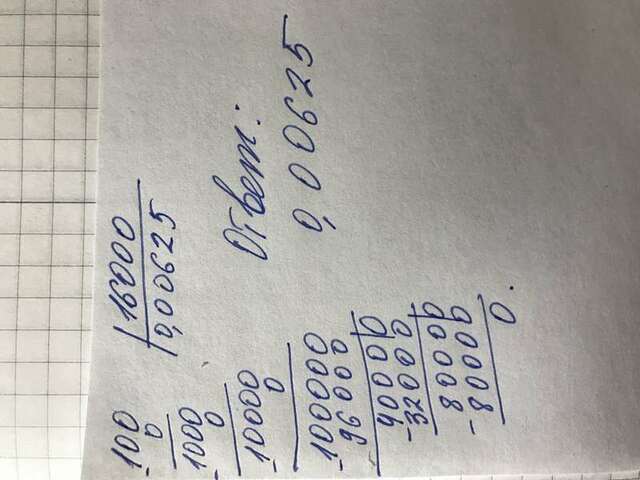 -100 | 16000
0 | 0,00625
-1000
0
-10000
0
-100000
96000
-40000
32000
-80000
-80000
0.
Ответ:
0,00625